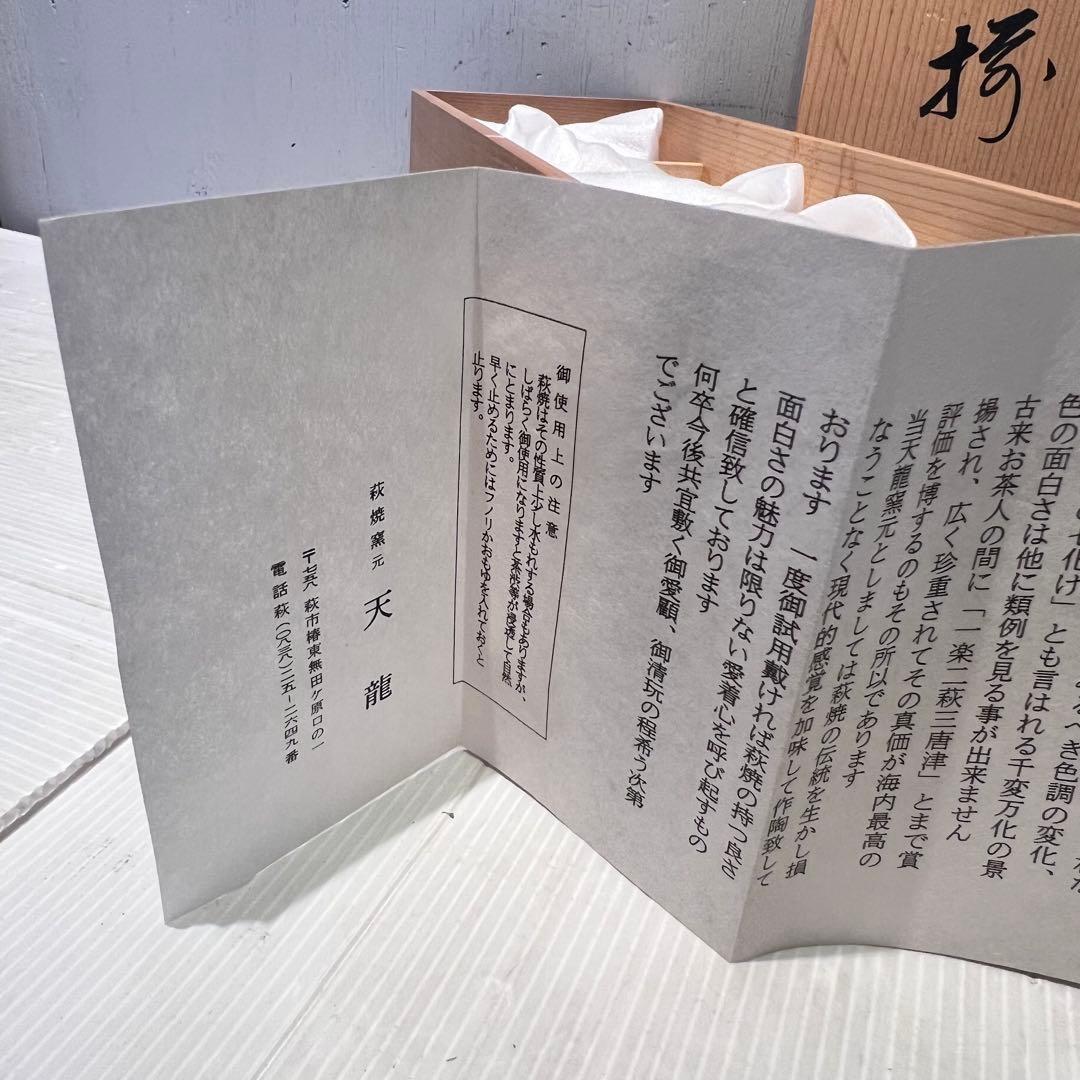 揃
の七化け」とも言はれる千変万化の景
色の面白さは他に類例を見る事が出来ません
古来お茶人の間に「一楽二萩三唐津」とまで賞
揚され、広く珍重されてその真価が海内最高の
評価を博するのもその所以であります
当天龍窯元としましては萩焼の伝統を生かし損
なうことなく現代的感覚を加味して作陶致して
おります 一度御試用戴ければ萩焼の持つ良さ
面白さの魅力は限りない愛着心を呼び起すもの
と確信致しております
何卒今後共宜敷く御愛顧、御清玩の程希う次第
でございます
御使用上の注意
萩焼はその性質上少し水もれする場合もありますが、
しばらく御使用になりますと茶渋等が浸透して自然
にとまります。
早く止めるためにはフノリかおもゆを入れておくと
止ります。
萩焼窯元 天龍
〒七五八 萩市椿東無田ケ原口の一
電話萩(〇八三八)二五-二六四九番